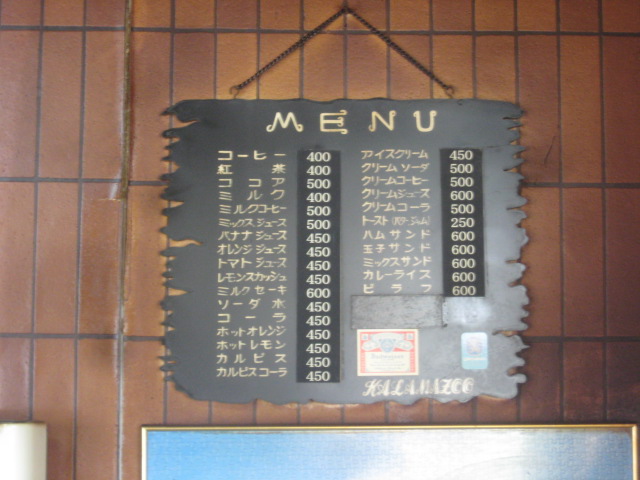 MENU
コーヒー 400
紅茶 400
ココア 500
ミルク 400
ミルクコーヒー 500
ミックスジュース 500
バナナジュース 450
オレンジジュース 450
トマトジュース 450
レモンスカッシュ 450
ミルクセーキ 600
ソーダ水 450
コーラ 450
ホットオレンジ 450
ホットレモン 450
カルピス 450
カルピスコーラ 450
アイスクリーム 450
クリームソーダ 500
クリームコーヒー 500
クリームジュース 600
クリームコーラ 500
トースト(バター・ジャム) 250
ハムサンド 600
玉子サンド 600
ミックスサンド 600
カレーライス 600
ピラフ 600
Budweiser
KALAMAZOO